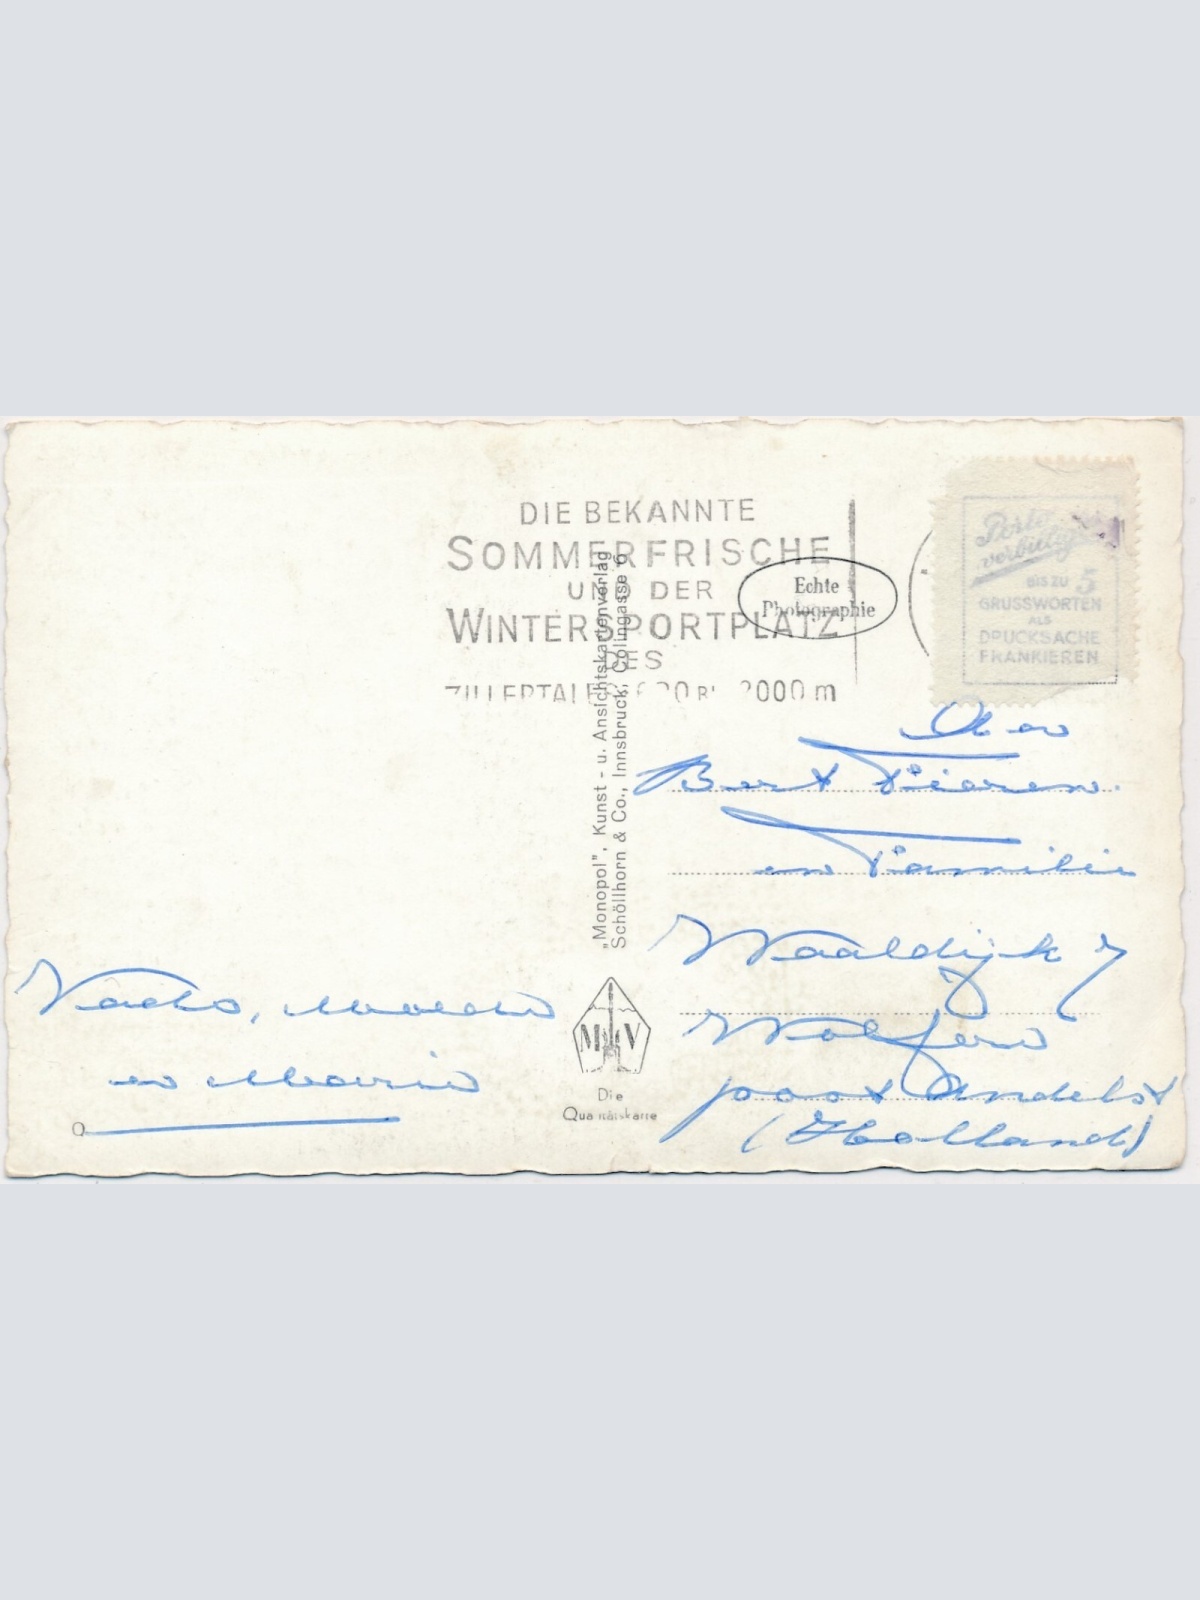 DIE BEKANNTE
SOMMERFRISCHE
UND DER
WINTERSPORTPLATZ
DES
2000 m
Echte
Photographie
Porto
verbilligt
BIS ZU 5
GRUSSWORTEN
ALS
DRUCKSACHE
FRANKIEREN
„Monopol”, Kunst- u. Ansichtskartenverlag
Schöllhorn & Co., Innsbruck, Colingasse 6
Bert
en Familie
Waaldijk 7
Wolferen
post Andelst
(Holland)
Vader, Moeder
en Marie
M V
Die
Qualitätskarte